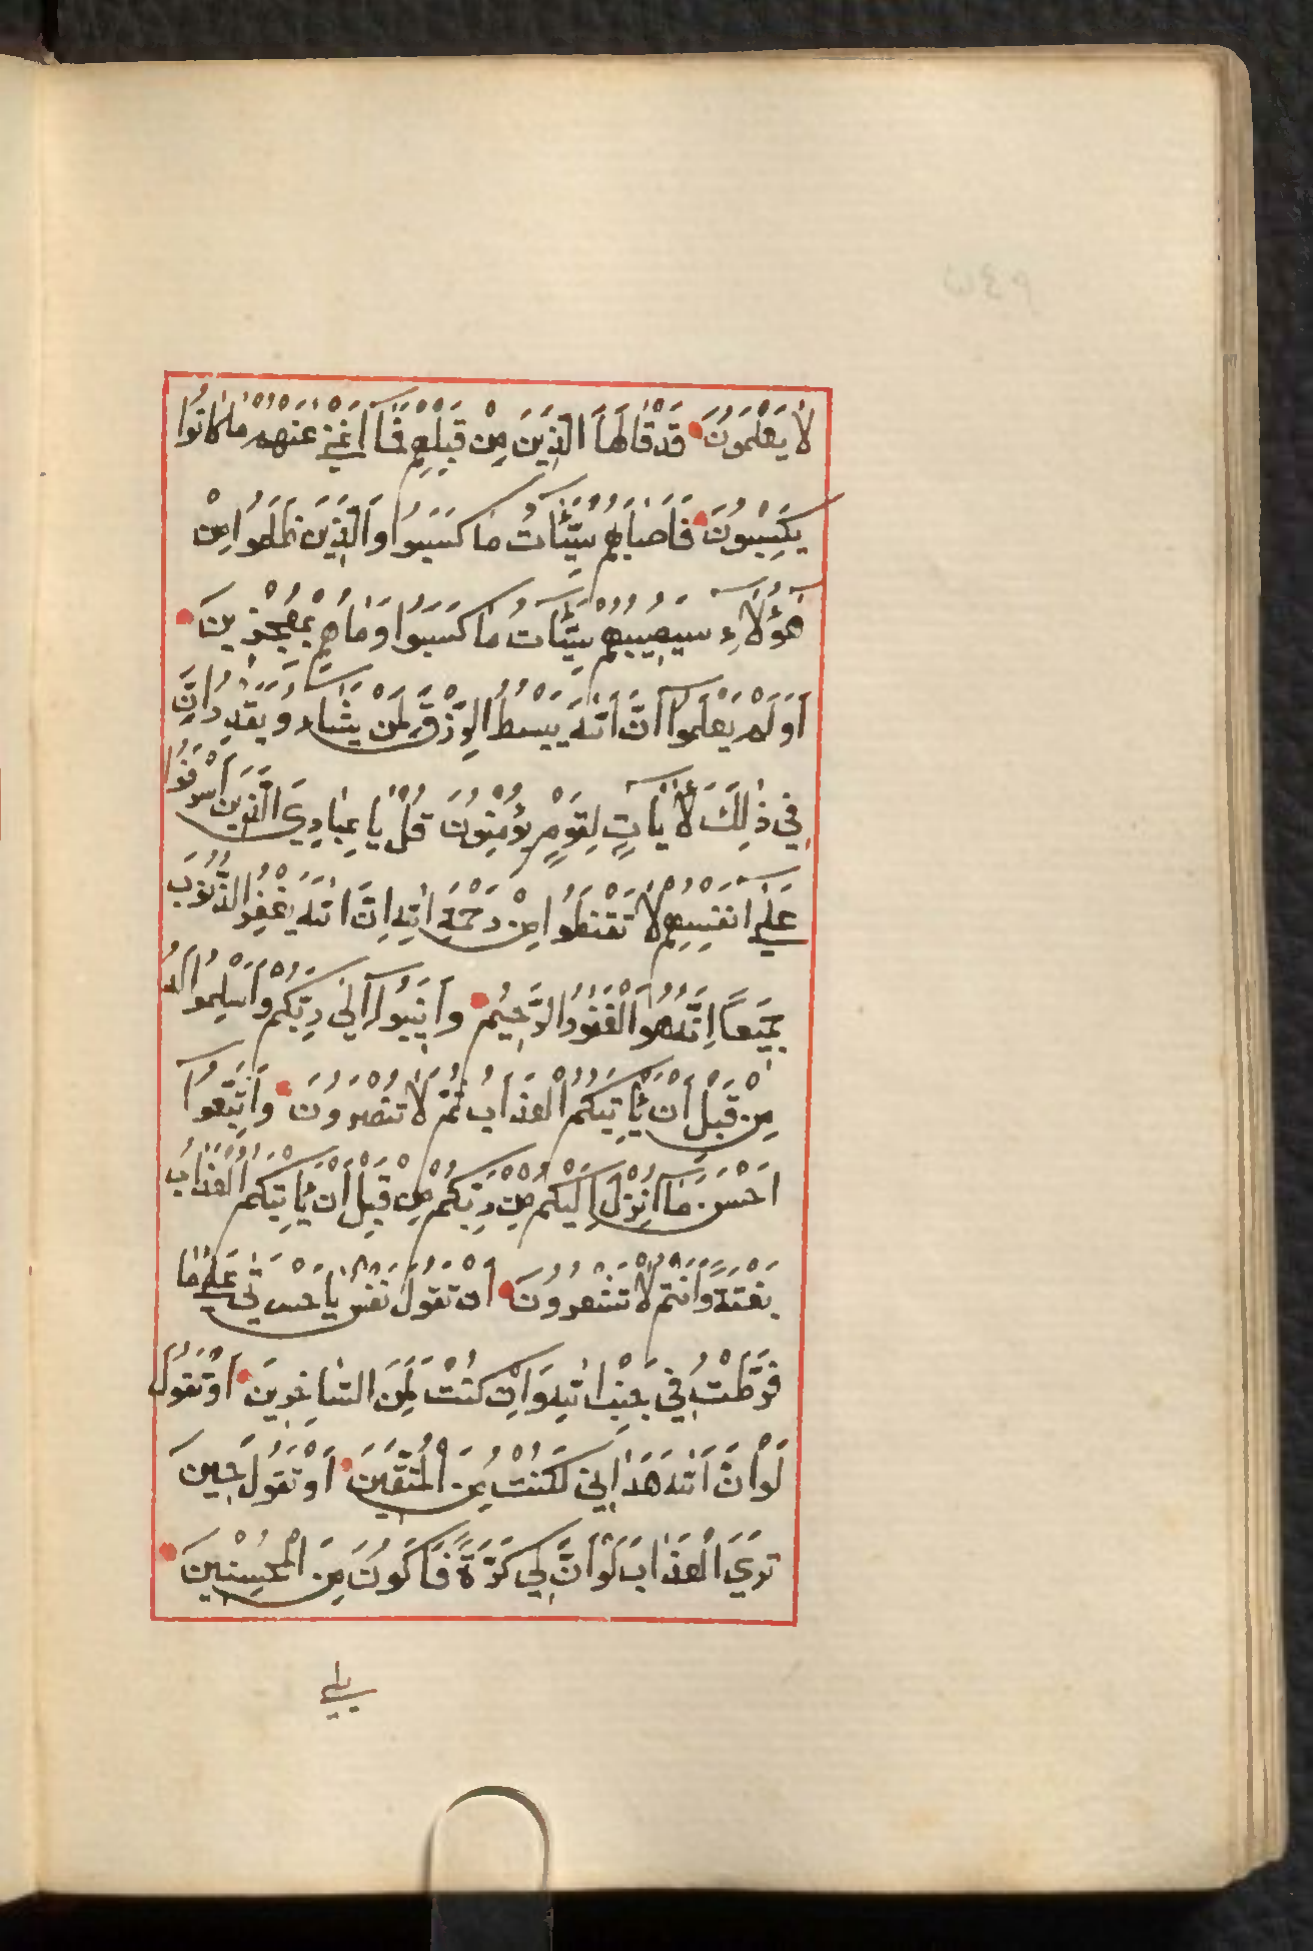 لَا يَعْلَمُونَ قَدْ قَالَهَا الَّذِينَ مِنْ قَبْلِهِمْ فَمَآ اَغْنٰي عَنْهُمْ مَا كَانُوا
يَكْسِبُونَ فَاَصَابَهُمْ سَيِّئَاتُ مَا كَسَبُوا وَالَّذِينَ ظَلَمُوا مِنْ
هَٓؤُلَٓاءِ سَيُصِيبُهُمْ سَيِّئَاتُ مَا كَسَبُوا وَمَا هُمْ بِمُعْجِزِينَ
اَوَلَمْ يَعْلَمُٓوا اَنَّ اللّٰهَ يَبْسُطُ الرِّزْقَ لِمَنْ يَشَٓاءُ وَيَقْدِرُ اِنَّ
فِي ذٰلِكَ لَاٰيَاتٍ لِقَوْمٍ يُؤْمِنُونَ قُلْ يَا عِبَادِيَ الَّذِينَ اَسْرَفُوا
عَلٰٓي اَنْفُسِهِمْ لَا تَقْنَطُوا مِنْ رَحْمَةِ اللّٰهِ اِنَّ اللّٰهَ يَغْفِرُ الذُّنُوبَ
جَمِيعًا اِنَّهُ هُوَ الْغَفُورُ الرَّحِيمُ وَاَنِيبُٓوا اِلٰي رَبِّكُمْ وَاَسْلِمُوا لَهُ
مِنْ قَبْلِ اَنْ يَأْتِيَكُمُ الْعَذَابُ ثُمَّ لَا تُنْصَرُونَ وَاتَّبِعُٓوا
اَحْسَنَ مَٓا اُنْزِلَ اِلَيْكُمْ مِنْ رَبِّكُمْ مِنْ قَبْلِ اَنْ يَأْتِيَكُمُ الْعَذَابُ
بَغْتَةً وَاَنْتُمْ لَا تَشْعُرُونَ اَنْ تَقُولَ نَفْسٌ يَا حَسْرَتٰي عَلٰي مَا
فَرَّطْتُ فِي جَنْبِ اللّٰهِ وَاِنْ كُنْتُ لَمِنَ السَّاخِرِينَ اَوْ تَقُولَ
لَوْ اَنَّ اللّٰهَ هَدَانِي لَكُنْتُ مِنَ الْمُتَّقِينَ اَوْ تَقُولَ حِينَ
تَرَي الْعَذَابَ لَوْ اَنَّ لِي كَرَّةً فَاَكُونَ مِنَ الْمُحْسِنِينَ
بلي